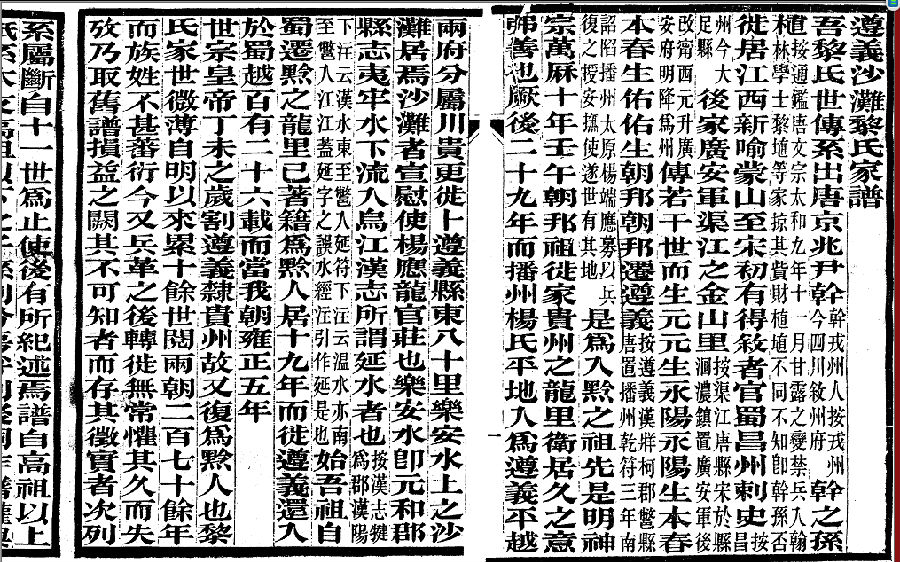 遵義沙灘黎氏家譜
吾黎氏世傳系出唐京兆尹幹幹戎州人按戎州今四川敘州府幹之孫
植按通鑑唐文宗太和九年十一月甘露之變禁兵入翰林學士黎埴等家掠其貲財植埴不同不知卽幹孫否
徙居江西新喻蒙山至宋初有得敘者官蜀昌州刺史按昌
州今大足縣後家廣安軍渠江之金山里按渠江唐縣宋於縣洄濃鎮置廣安軍後
改甯西元升廣安府明降爲州傳若干世而生元元生永陽永陽生本春
本春生佑佑生朝邦朝邦遷遵義按遵義漢牂柯郡鄨縣唐置播州乾符三年南
詔陷播州太原楊端應募以兵復之授安撫使遂世有其地是爲入黔之祖先是明神
宗萬厤十年壬午朝邦祖徙家貴州之龍里衛居久之意
弗善也厥後二十九年而播州楊氏平地入爲遵義平越
兩府分屬川貴更徙卜遵義縣東八十里樂安水上之沙
灘居焉沙灘者宣慰使楊應龍官莊也樂安水卽元和郡
縣志夷牢水下流入烏江漢志所謂延水者也按漢志犍爲郡漢陽
下注云漢水東至鄨入延符下注云溫水亦南至鄨入江蓋延字之誤水經注引作延是也始吾祖自
蜀遷黔之龍里已著籍爲黔人居十九年而徙遵義還入
於蜀越百有二十六載而當我朝雍正五年
世宗皇帝丁未之歲割遵義隸貴州故又復爲黔人也黎
氏家世微薄自明以來累十餘世閱兩朝二百七十餘年
而族姓不甚蕃衍今又兵革之後轉徙無常懼其久而失
攷乃取舊譜損益之闕其不可知者而存其徵實者次列
系屬斷自十一世爲止使後有所紀述焉譜自高祖以上